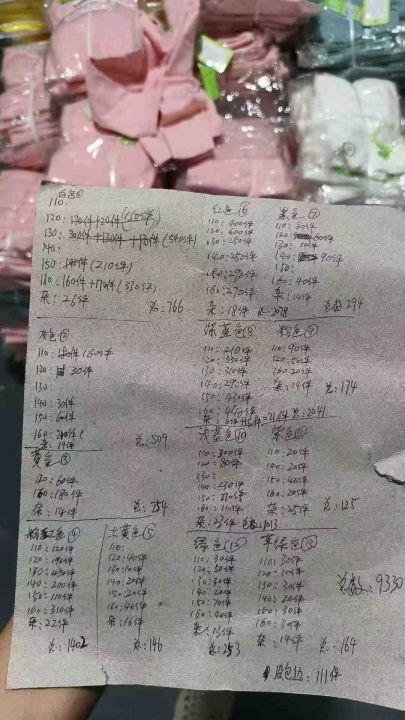 白色①
110:
120: 170件+20件(150件)
130: 300件+130件+110件(540件)
140:
150: 190件(210件)
160: 160件+170件(330件)
杂: 26件
总: 766
灰色②
110: 150件(150件)
120: 30件
130:
140: 30件
150: 60件
160: 210件
杂: 19件
总: 509
黄色③
120: 60件
160: 180件
杂: 14件
总: 254
粉红色④
110: 120件
120: 190件
130: 450件
140: 200件
150: 110件
160: 310件
杂: 22件
总: 1402
土黄色⑤
110:
120: 40件
130: 10件
140: 20件
150: 20件
160: 40件
杂: 16件
总: 146
红色⑥
110: 400件
120: 600件
130: 250件
140: 250件
150: 290件
160: 270件
杂: 18件
总: 2078
黑色⑦
110: 50件
120: 50件
130: 10件
140: 90件
150:
160: 40件
杂: 14件
总数 294
深蓝色⑧
110: 210件
120: 350件
130: 310件
140: 290件
150: 430件
杂: 6件+15件=21件
总: 2041
粉色⑨
110: 90件
120: 50件
160: 20件
杂: 14件
总: 174
浅蓝色⑩
110: 300件
120: 80件
130:
140: 230件
杂: 23件
总数: 1013
紫色⑪
110: 20件
140: 20件
150: 40件
160: 20件
杂: 25件
总: 125
绿色⑫
110: 30件
120: 50件
130: 30件
140: 20件
150: 70件
160: 40件
杂: 13件
总: 253
草绿色⑬
110: 30件
120: 30件
130: 30件
140: 20件
150: 30件
杂: 14件
总: 164
总数: 9330
没包边: 111件